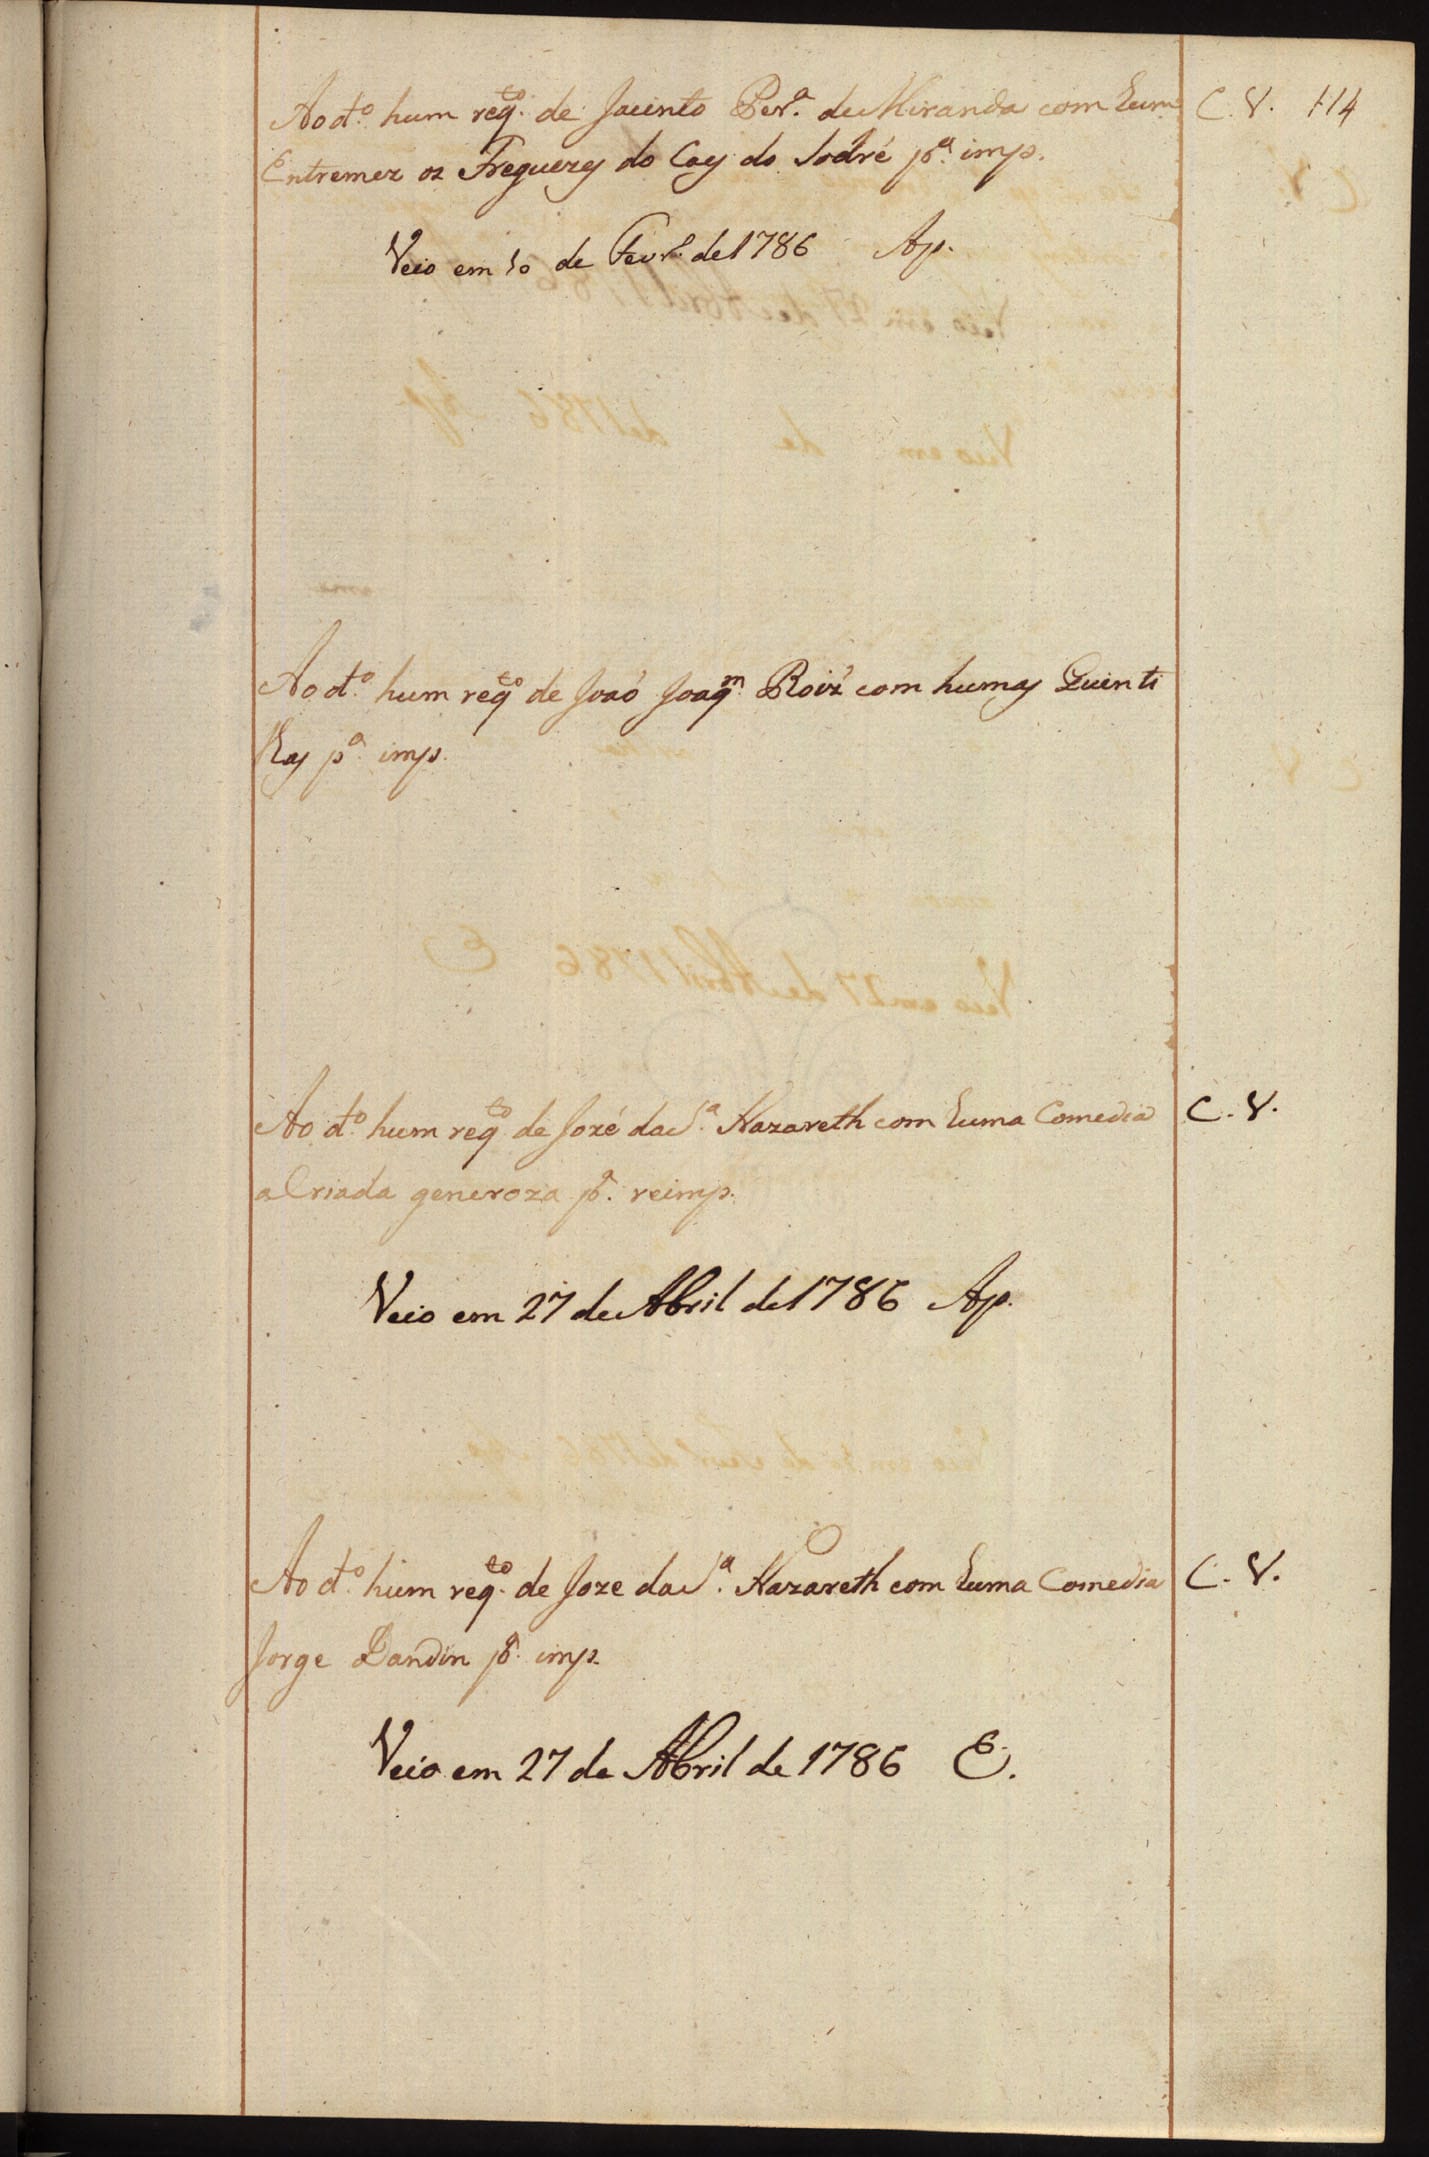 Ao d.º hum req.to de Jacinto Per.ª de Miranda com hum C. V. 114
Entremez os Freguezes do Caes do Sodré p.ª imp.
Veio em 10 de Fevr.º de 1786 Ap.
Ao d.º hum req.to de Joaõ Joaq.m Roiz' com humas Quinti
lhas p.ª imp.
Ao d.º hum req.to de Jozé da S.ª Nazareth com huma Comedia C. V.
a Criada generoza p.ª reimp.
Veio em 27 de Abril de 1786 Ap.
Ao d.º hum req.to de Joze da S.ª Nazareth com huma Comedia C. V.
Jorge Dandin p.ª imp.
Veio em 27 de Abril de 1786 E.